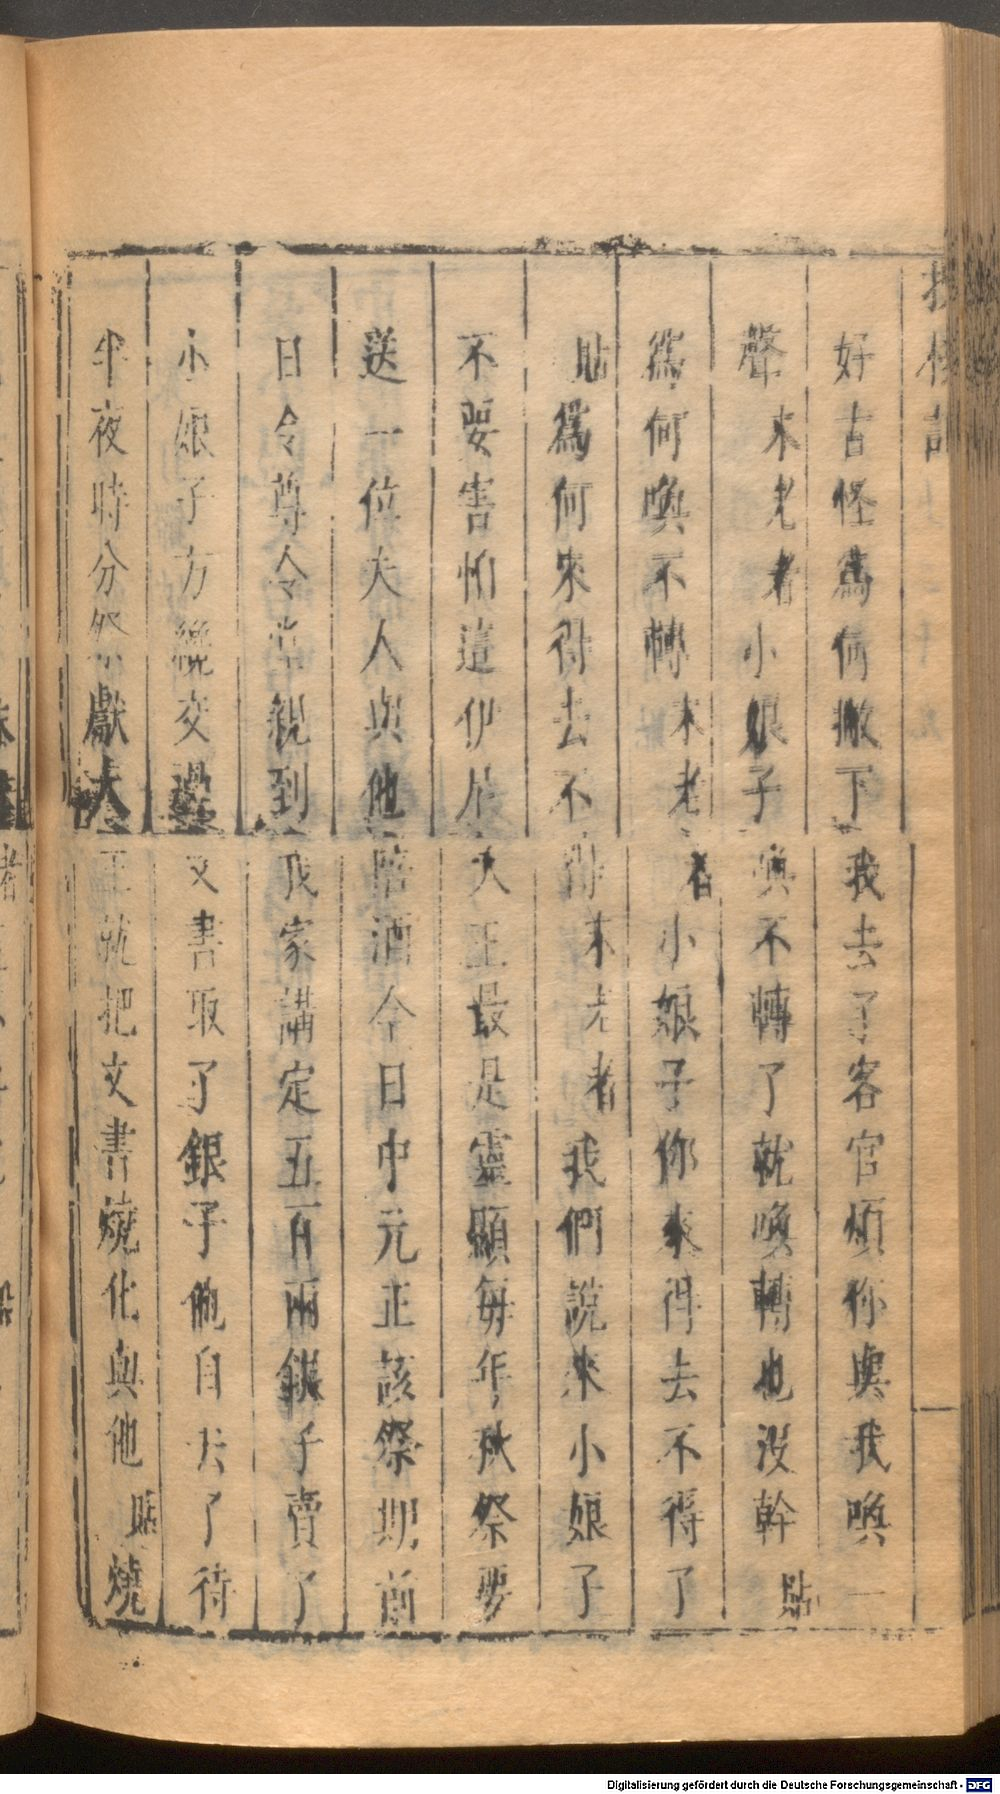 好古怪為何撇下我去了客官煩你與我喚一
聲末老者小娘子喚不轉了就喚轉也沒幹貼
為何喚不轉末老者小娘子你來得去不得了
貼為何來得去不得末老者我們說來小娘子
不要害怕這伊尼大王最是靈顯每年秋祭要
送一位夫人與他陪酒今日中元正該祭期前
日令尊令堂親到我家講定五百兩銀子賣了
小娘子方纔交過文書取了銀子他自去了待
半夜時分祭獻大王就把文書燒化與他貼燒
Digitalisierung gefördert durch die Deutsche Forschungsgemeinschaft - DFG